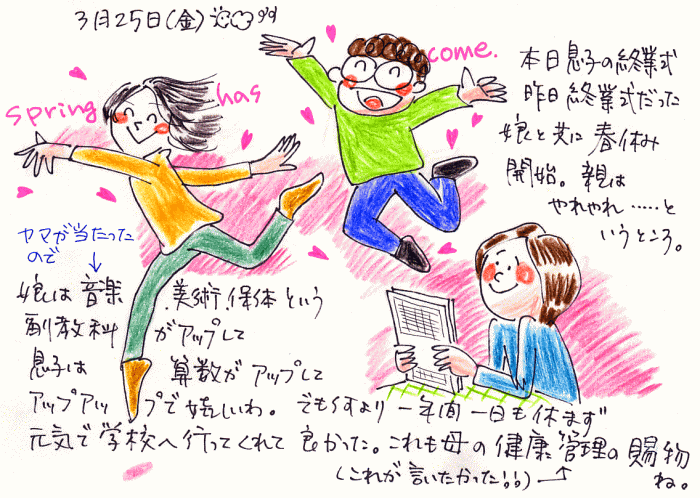 3月25日(金)
spring has come.
本日息子の終業式
昨日終業式だった
娘と共に春休み
開始。親は
やれやれ……と
いうところ。
ヤマが当たった
ので
娘は音楽.美術.保体という
副教科がアップして
息子は算数がアップして
アップアップで嬉しいわ。でも何より一年間一日も休まず
元気で学校へ行ってくれて良かった。これも母の健康管理の賜物
ね。
(これが言いたかった!!)